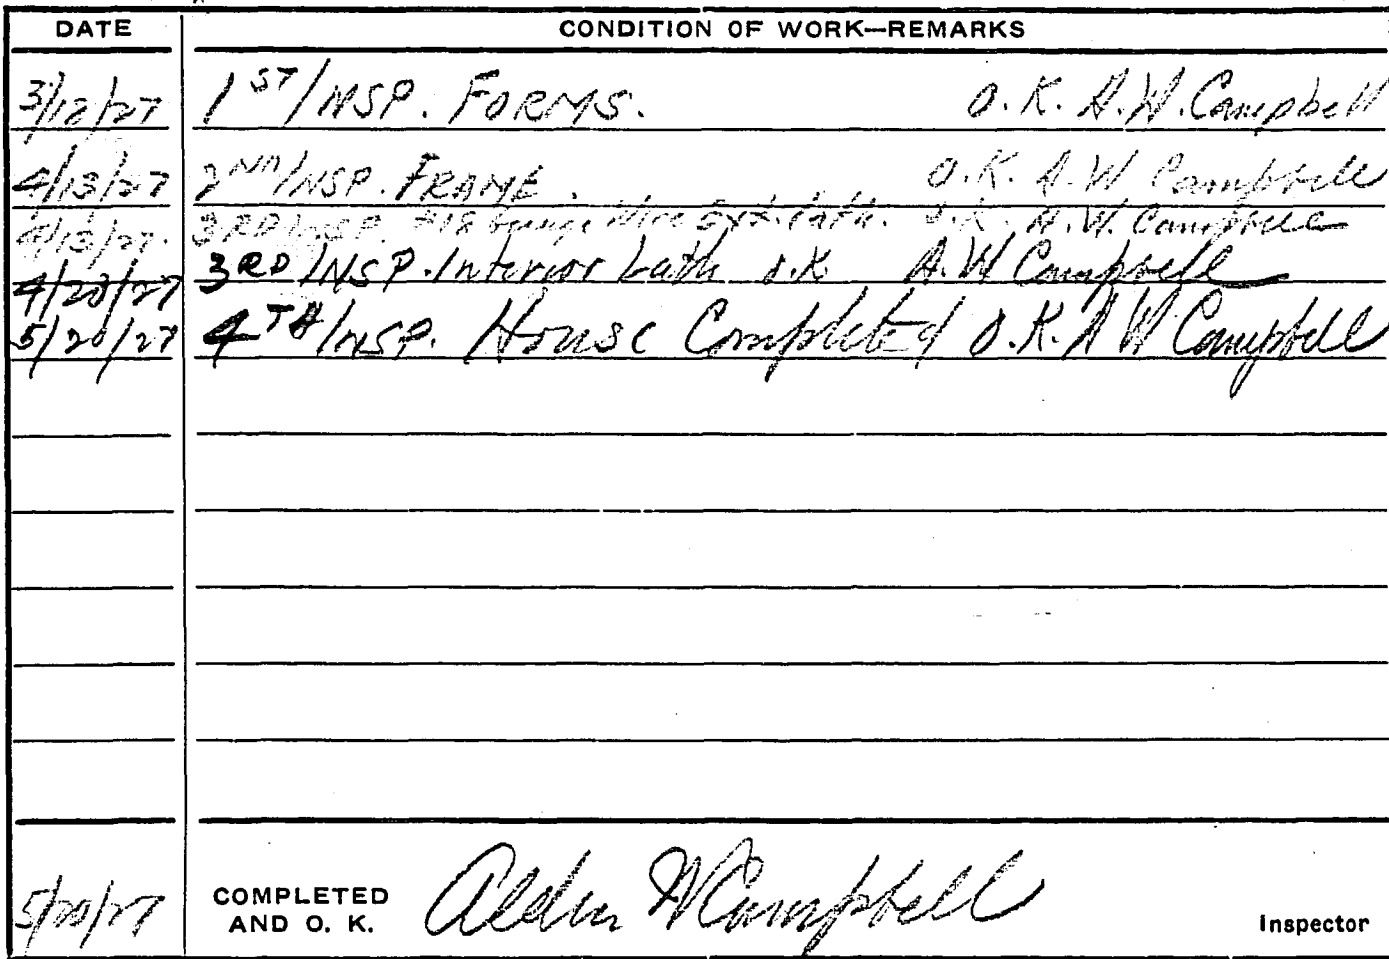 DATE CONDITION OF WORK—REMARKS
3/12/27 1ST INSP. FORMS. O.K. A.W. Campbell
4/13/27 2ND INSP. FRAME. O.K. A.W. Campbell
4/13/27. 3RD INSP. #18 Wire Ext. Lath. O.K. A.W. Campbell
4/20/27 3RD INSP. Interior Lath O.K. A.W Campbell
5/20/27 4TH INSP. House Completed O.K. A W Campbell
5/20/27 COMPLETED
AND O. K. Alden W Campbell Inspector